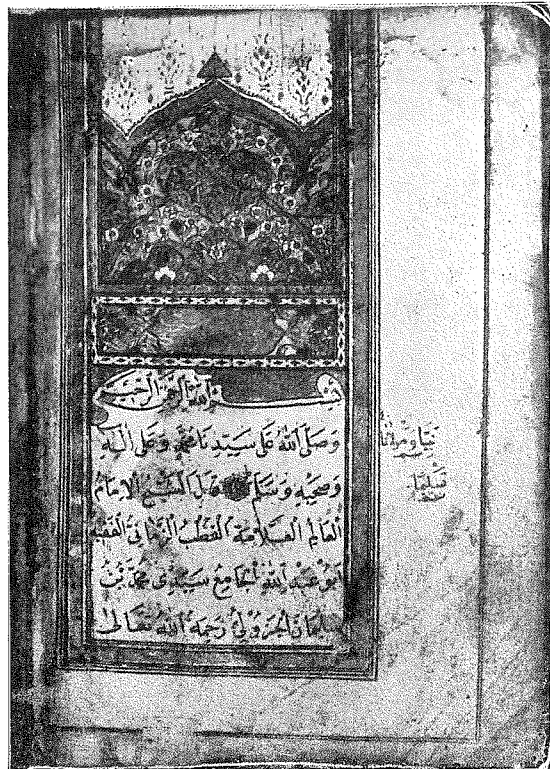 بسم الله الرحمن الرحيم
وصلى الله على سيدنا محمد وعلى اله
وصحبه وسلم قال الشيخ الامام
العالم العلامة القطب الربانى الفقيه
ابو عبد الله الجامع سيدى محمد بن
سليمان الجزولى رحمه الله تعالى
نبينا ومولانا